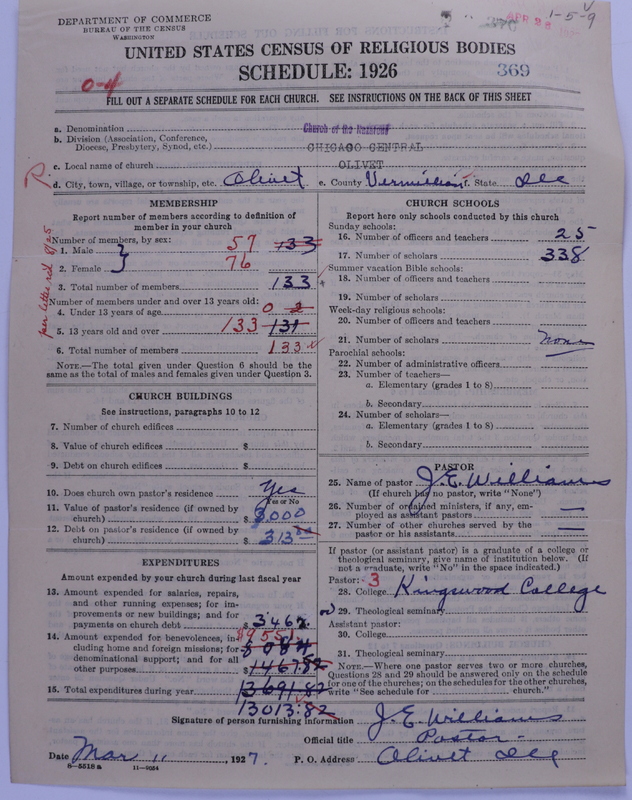 DEPARTMENT OF COMMERCE
BUREAU OF THE CENSUS
WASHINGTON
APR 28
1-5-9
UNITED STATES CENSUS OF RELIGIOUS BODIES
SCHEDULE: 1926
369
0-4
FILL OUT A SEPARATE SCHEDULE FOR EACH CHURCH. SEE INSTRUCTIONS ON THE BACK OF THIS SHEET
a. Denomination Church of the Nazarene
b. Division (Association, Conference, Diocese, Presbytery, Synod, etc.) CHICAGO CENTRAL
c. Local name of church OLIVET
d. City, town, village, or township, etc. Olivet e. County Vermilion f. State Ill
MEMBERSHIP
Report number of members according to definition of
member in your church
Number of members, by sex:
1. Male 57 133
2. Female 76
3. Total number of members 133
Number of members under and over 13 years old:
4. Under 13 years of age 0 2
5. 13 years old and over 133 131
6. Total number of members 133
NOTE.—The total given under Question 6 should be
same as the total of males and females given under Question 3.
CHURCH BUILDINGS
See instructions, paragraphs 10 to 12
7. Number of church edifices
8. Value of church edifices $
9. Debt on church edifices $
10. Does church own pastor's residence Yes
Yes or No
11. Value of pastor's residence (if owned by
church) $ 3000
12. Debt on pastor's residence (if owned by
church) $ 313
EXPENDITURES
Amount expended by your church during last fiscal year
13. Amount expended for salaries, repairs,
and other running expenses; for im-
provements or new buildings; and for
payments on church debt $ 3462
14. Amount expended for benevolences, in-
cluding home and foreign missions; for
denominational support; and for all
other purposes 1467.82
15. Total expenditures during year 13691.82
13013.82
CHURCH SCHOOLS
Report here only schools conducted by this church
Sunday schools:
16. Number of officers and teachers 25
17. Number of scholars 338
Summer vacation Bible schools:
18. Number of officers and teachers
19. Number of scholars
Week-day religious schools:
20. Number of officers and teachers
21. Number of scholars none
Parochial schools:
22. Number of administrative officers
23. Number of teachers—
a. Elementary (grades 1 to 8)
b. Secondary
24. Number of scholars—
a. Elementary (grades 1 to 8)
b. Secondary
PASTOR
25. Name of pastor J. E. Williams
(If church has no pastor, write "None")
26. Number of ordained ministers, if any, em-
ployed as assistant pastors —
27. Number of other churches served by the
pastor or his assistants —
If pastor (or assistant pastor) is a graduate of a college or
theological seminary, give name of institution below. (If
not a graduate, write "No" in the space indicated.)
Pastor: - 3
28. College Kingswood College
29. Theological seminary
Assistant pastor:
30. College
31. Theological seminary
NOTE.—Where one pastor serves two or more churches,
Questions 28 and 29 should be answered only on the schedule
for one of the churches; on the schedules for the other churches,
write "See schedule for church."
Signature of person furnishing information J. E. Williams
Official title Pastor
Date Mar 11, 1927. P. O. Address Olivet Ill
8—5518 a 11—9054